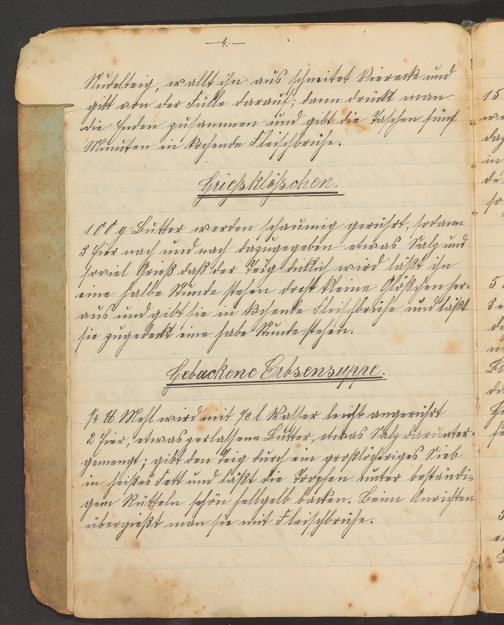 — 4. —
Nudelteig, wallt ihn aus schneidet Vierecke und
gibt von der Fülle darauf; dann drückt man
die Enden zusammen und gibt die Taschen fünf
Minuten in kochende Fleischbrühe.
Griesklößchen.
100 g Butter werden schaumig gerührt, sodann
3 Eier nach und nach dazugegeben etwas Salz und
soviel Grieß daß der Teig dicklich wird läßt ihn
eine halbe Stunde stehen dreht kleine Klößchen her-
aus und gibt sie in kochende Fleischbrühe und läßt
sie zugedeckt eine habe Stunde stehen.
Gebackene Erbsensuppe.
Mehl wird mit l Wasser leicht angerührt
2 Eier, etwas zerlassene Butter, etwas Salz darunter-
gemengt; gibt den Teig durch ein großlöcheriges Sieb
in heißes Fett und läßt die Tropfen unter beständi-
gem Rütteln schön hellgelb backen. Beim Anrichten
übergießt man sie mit Fleischbrühe.